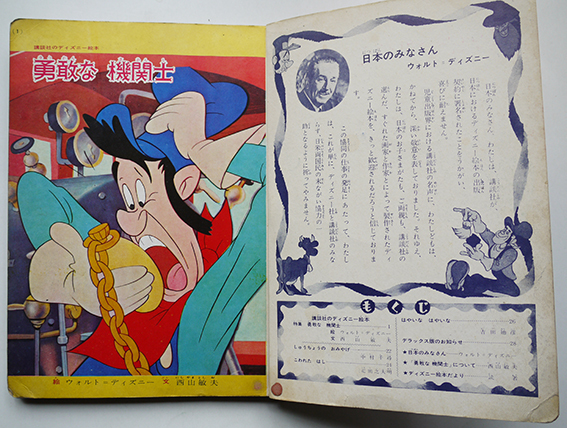 (1)
講談社のディズニー絵本
勇敢な 機関士
絵 ウォルト=ディズニー 文 西山敏夫
日本のみなさん
ウォルト・ディズニー
日本のみなさん、わたしは、講談社が、
日本におけるディズニー絵本の出版
契約に署名されたことをうかがい、
喜びに耐えません。
児童出版界における講談社の名声に、わたしどもは、
かねてから、深い敬意を表しておりました。それゆえ、
わたしは、日本のお子さまがたも、ご両親も、講談社の
選んだ、すぐれた画家と作家とによって製作されたディ
ズニー絵本を、きっと歓迎されるだろうと信じておりま
す。
この協同の仕事の発足にあたって、わたし
は、これが単に、ディズニー社と講談社のみな
らず、日米両国民の末ながい協力の
もくじ
講談社のディズニー絵本
特集 勇敢な 機関士 1
絵 ウォルト=ディズニー
文 西山敏夫
しゅうちょうの おみやげ 22
こわれた はし
はやいな はやいな 26
デラックス版のお知らせ 28
★日本のみなさん ウォルト=ディズニー
★「勇敢な 機関士」について 西山敏夫
★ディズニー絵本だより